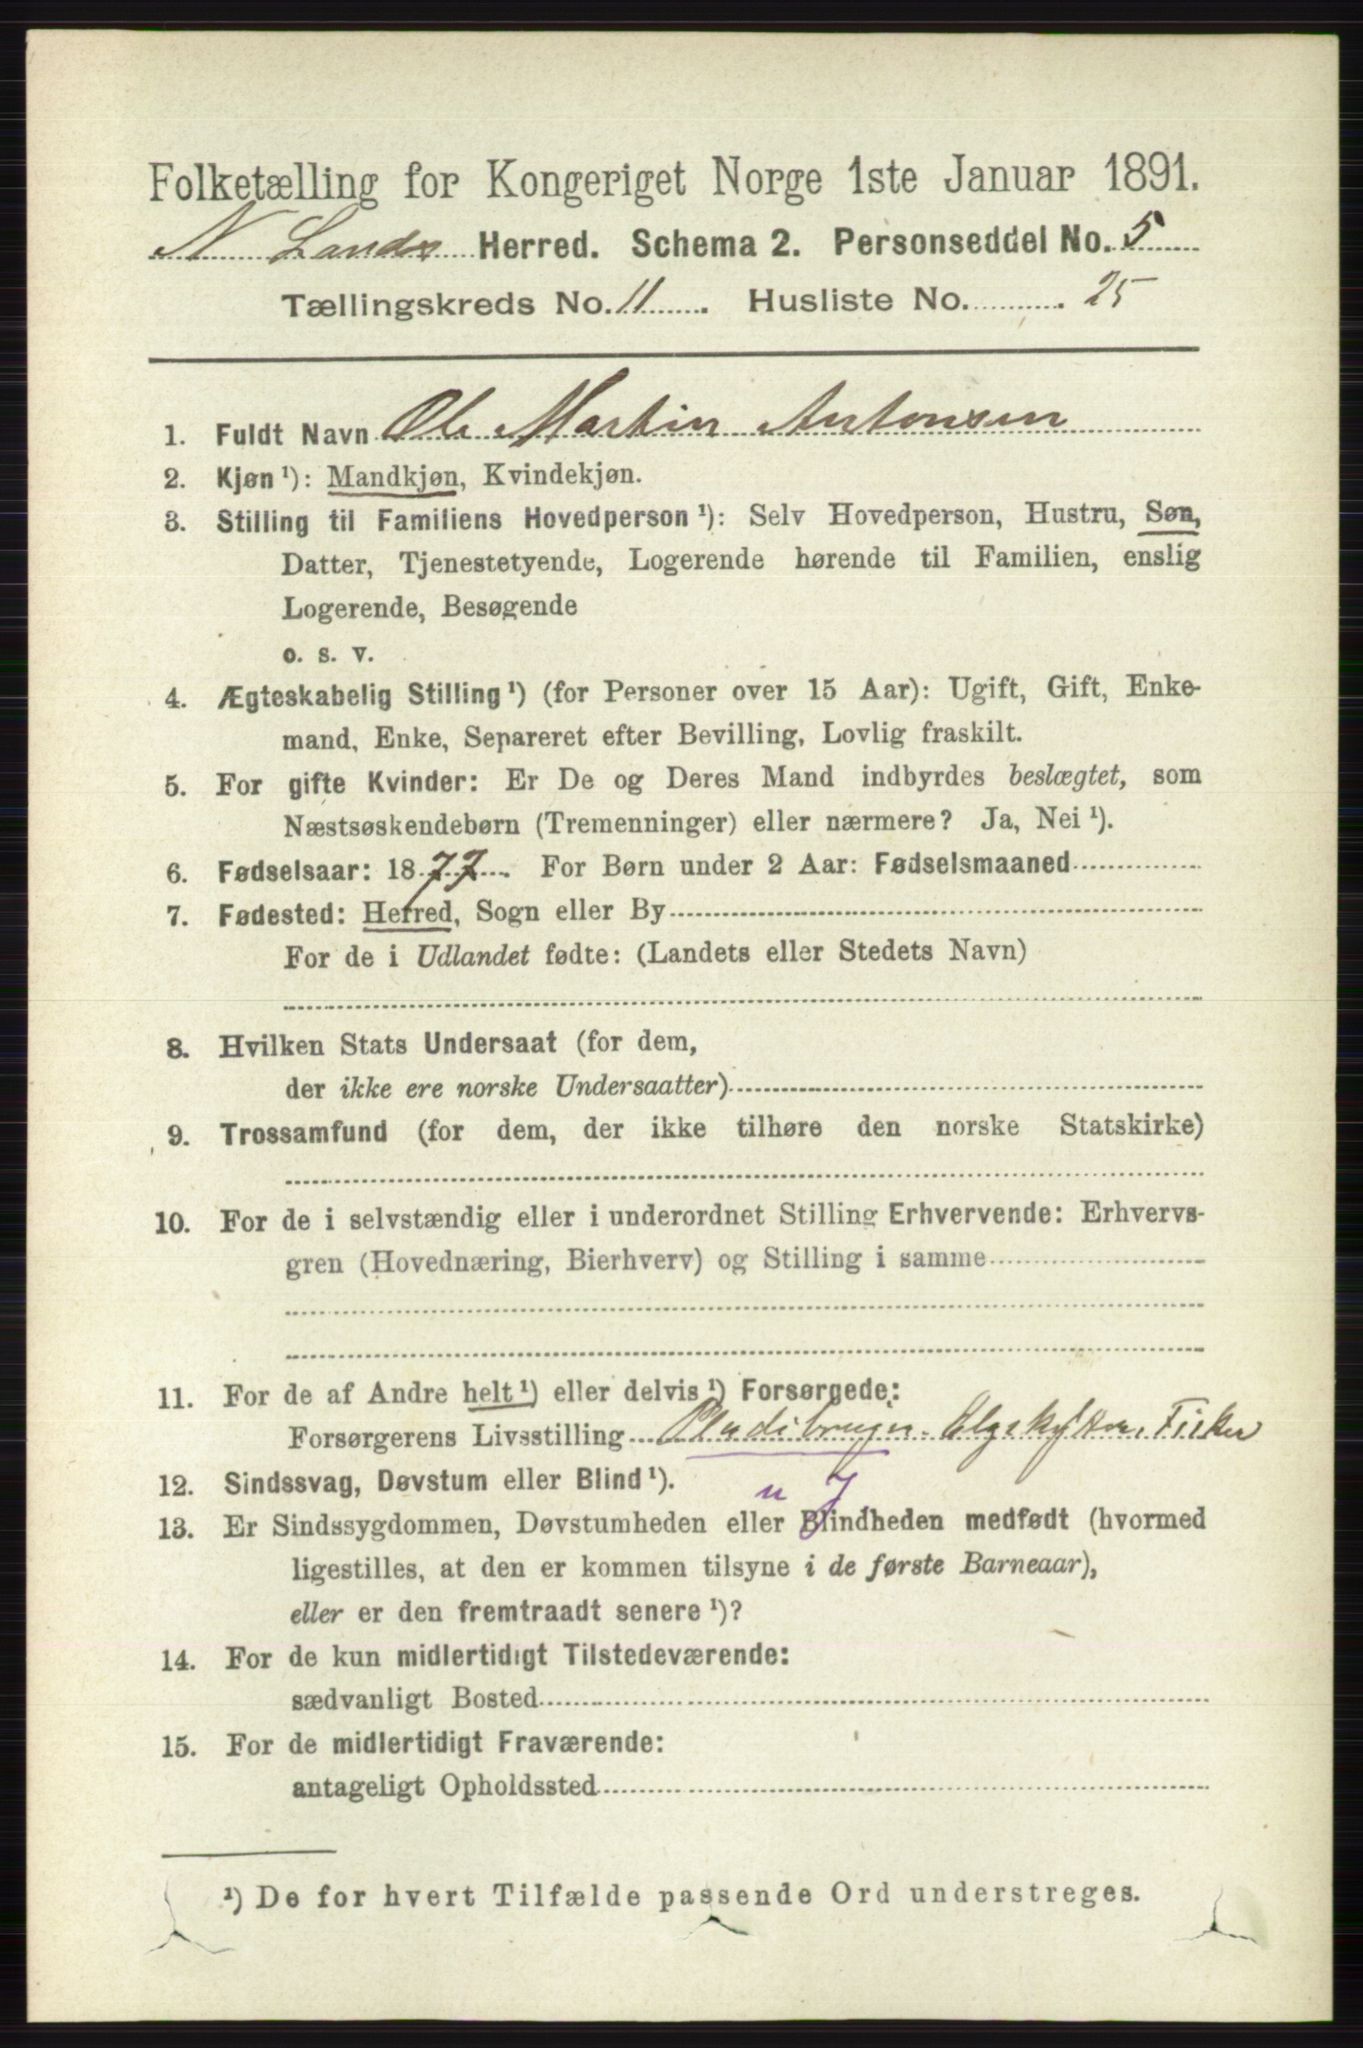 Folketælling for Kongeriget Norge 1ste Januar 1891.
N. Lands Herred. Schema 2. Personseddel No. 5
Tællingskreds No. 11. Husliste No. 25
1. Fuldt Navn Ole Martin Antonsen
2. Kjøn ¹): Mandkjøn, Kvindekjøn.
3. Stilling til Familiens Hovedperson ¹): Selv Hovedperson, Hustru, Søn,
Datter, Tjenestetyende, Logerende hørende til Familien, enslig
Logerende, Besøgende
o. s. v.
4. Ægteskabelig Stilling ¹) (for Personer over 15 Aar): Ugift, Gift, Enke-
mand, Enke, Separeret efter Bevilling, Lovlig fraskilt.
5. For gifte Kvinder: Er De og Deres Mand indbyrdes beslægtet, som
Næstsøskendebørn (Tremenninger) eller nærmere? Ja, Nei ¹).
6. Fødselsaar: 1877. For Børn under 2 Aar: Fødselsmaaned
7. Fødested: Herred, Sogn eller By
For de i Udlandet fødte: (Landets eller Stedets Navn)
8. Hvilken Stats Undersaat (for dem,
der ikke ere norske Undersaatter)
9. Trossamfund (for dem, der ikke tilhøre den norske Statskirke)
10. For de i selvstændig eller i underordnet Stilling Erhvervende: Erhvervs-
gren (Hovednæring, Bierhverv) og Stilling i samme
11. For de af Andre helt ¹) eller delvis ¹) Forsørgede:
Forsørgerens Livsstilling Fisker
12. Sindssvag, Døvstum eller Blind ¹).
13. Er Sindssygdommen, Døvstumheden eller Blindheden medfødt (hvormed
ligestilles, at den er kommen tilsyne i de første Barneaar),
eller er den fremtraadt senere ¹)?
14. For de kun midlertidigt Tilstedeværende:
sædvanligt Bosted
15. For de midlertidigt Fraværende:
antageligt Opholdssted
¹) De for hvert Tilfælde passende Ord understreges.